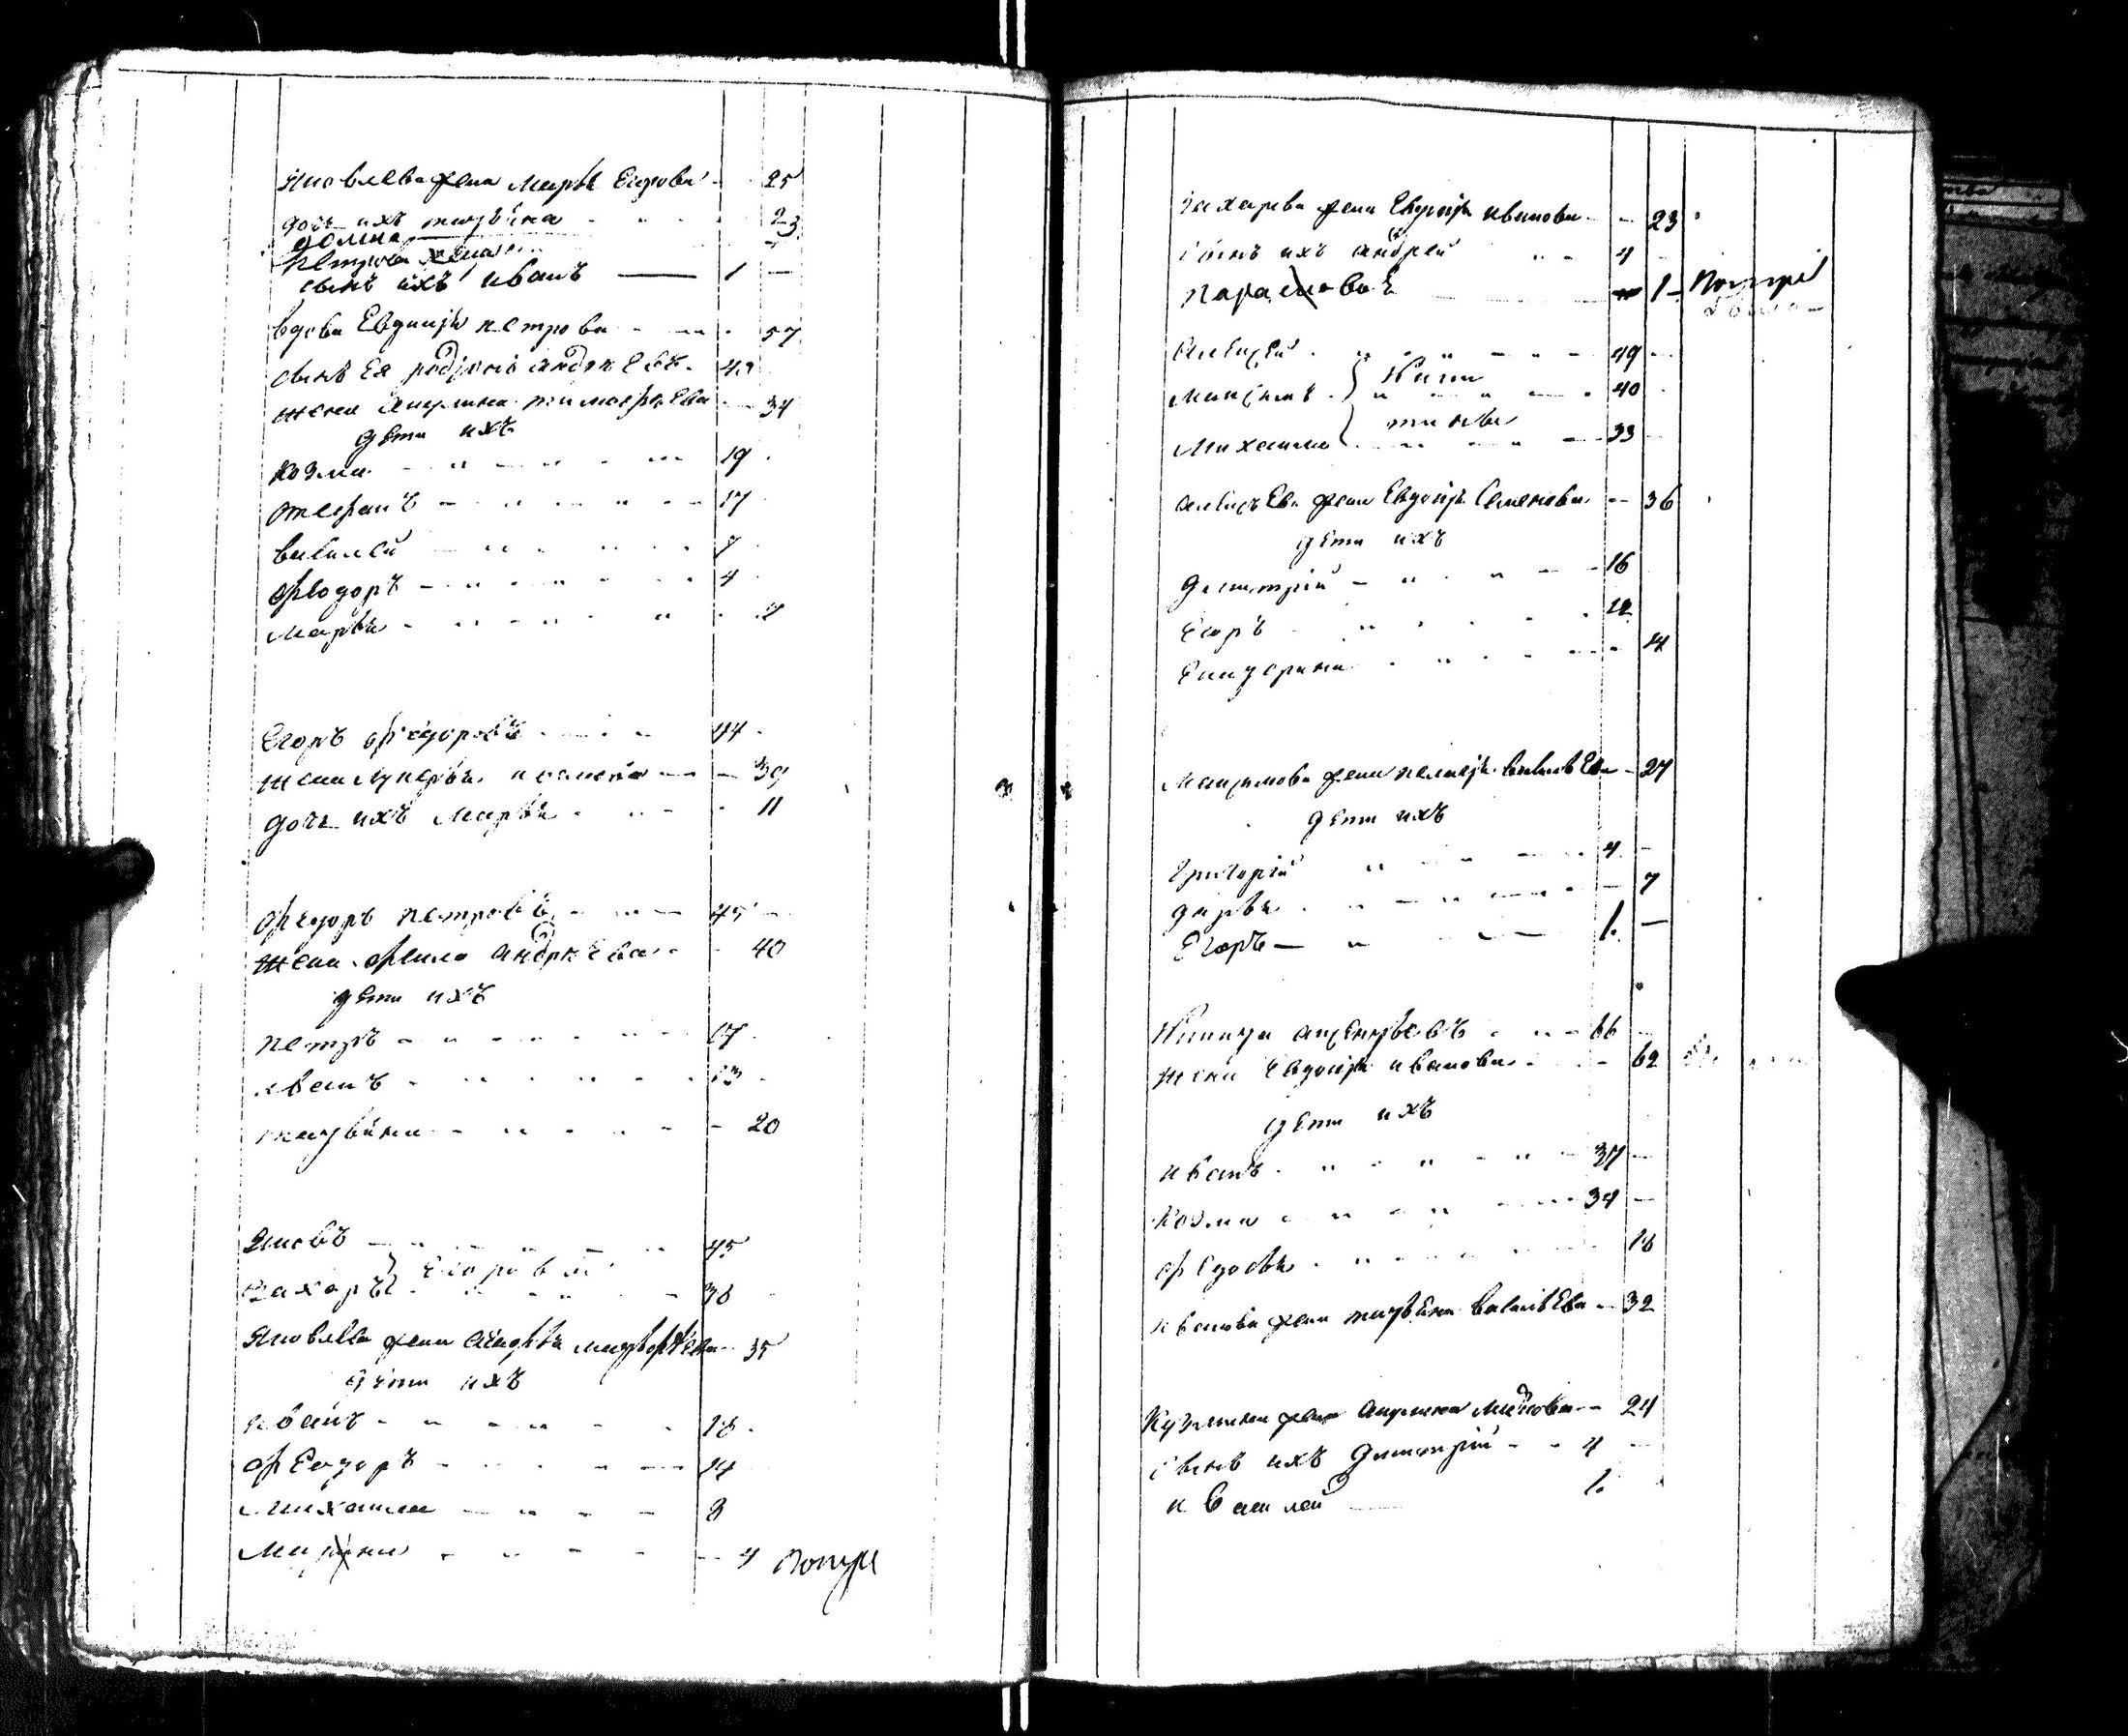 Яковлева жена Марья Егорова 25
дочь ихъ матрёна 23
домна
петрова жена
сынъ ихъ иванъ 1 —
вдова Евдокия петрова 57
сынъ Ея родіонъ андреевъ 43
жена Акулина тимофеева 34
дети ихъ
козма 19
стефанъ 17
василей 7
феодоръ 4
Марья
Егоръ феодоровъ 44
жена лукерья 39
дочь ихъ Марья 11
феодоръ петровъ 45
жена фекла андреева 40
дети ихъ
петръ 17
иванъ 13
матрёна 20
Яковъ 45
Егоровы
Захаръ 38
Яковлева жена 35
дети ихъ
иванъ 18
феодоръ 14
михаила 8
Марина 4 помре
Захарова жена Евдокия иванова 23
сынъ ихъ андрей 4
парасковья 1 помре
Алексей 49
Ники
Максимъ 40
тины
Михаила 33
Алексеева жена Евдокия Семенова 36
дети ихъ
димитрій 16
Егоръ 12
Екатерина 14
Максимова жена пелагея васильева 27
дети ихъ
григорій 4
дарья 7
Егоръ — 1. —
Никита 66
жена Евдокия иванова 62
дети ихъ
иванъ 37
козма 34
федосья 18
иванова жена матрёна васильева 32
Кузмина жена акулина 24
сынъ ихъ димитрій 4
и василей 1.